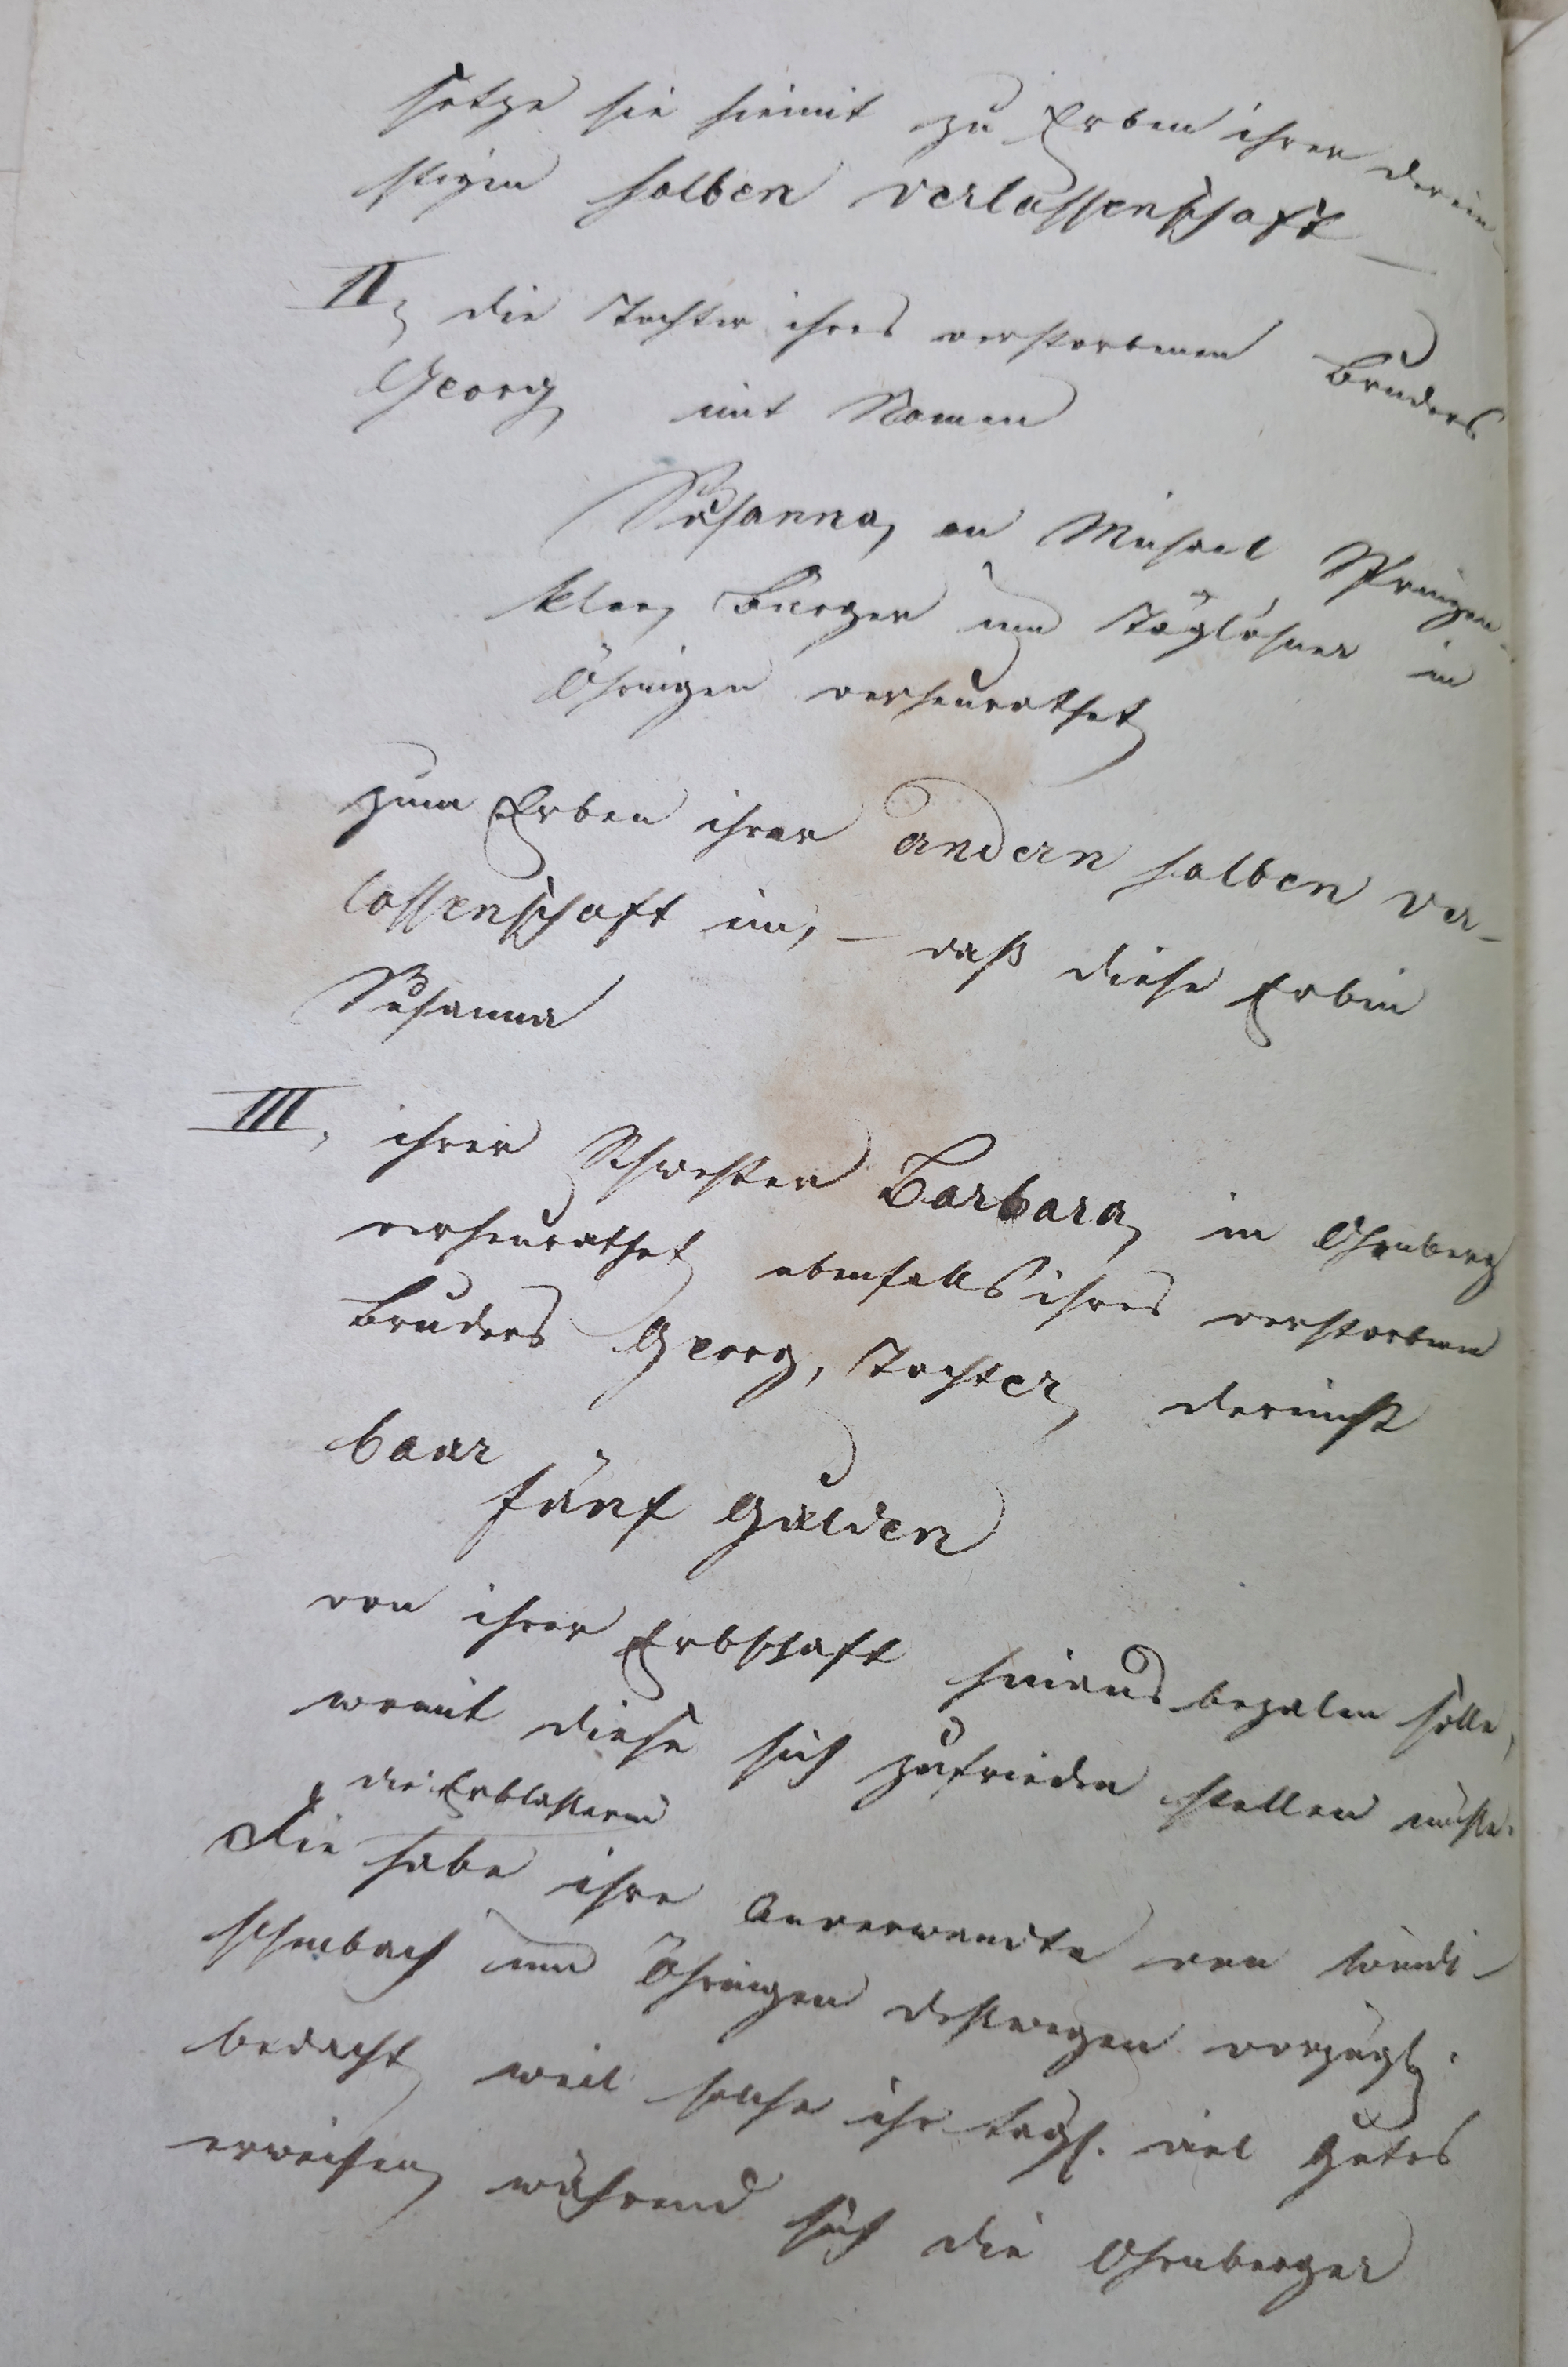 setze sie hiemit zu Erben ihrer derein-
stigen halben Verlassenschaft —
II, die Tochter ihres verstorbenen Bruders
Georg, mit Namen
Susanna, an Michael
klee, Burger und Taglöhner in
Öhringen verheurathet,
zum Erben ihrer andern halben Ver-
lassenschaft ein, — daß diese Erbin
Susanna
III, ihrer Schwester Barbara, in Ohrnberg
verheurathet, ebenfalls ihres verstorbenen
Bruders Georg, Tochter, dereinst
baar
fünf Gulden
von ihrer Erbschaft hinaus bezalen solle,
womit diese sich zufrieden stellen müste.
die Erblasserin
Sie habe ihre Anverwandte von Windi-
schenbach und Öhringen deswegen vorzügl.
bedacht, weil solche ihr tägl. viel Gutes
erweisen, während sich die Ohrnberger